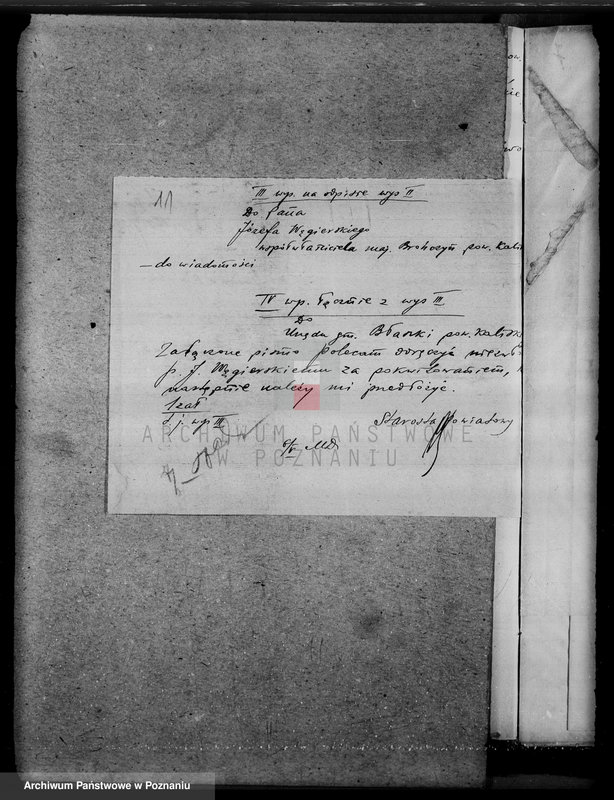 11
III wyp. na odpisie wyp II
Do Pana
Józefa Węgierskiego
współwłaściciela maj. pow. Kalis
— do wiadomości
IV wyp. łącznie z wyp III
Do
Urzędu gm. Błaszki pow. Kaliski
Załączone pismo polecam doręczyć
p. J. Węgierskiemu za pokwitowaniem,
następnie należy mi przedłożyć.
1 zał
t.j. wyp III
Starosta Powiatowy
ARCHIWUM PAŃSTWOWE
W POZNANIU
Archiwum Państwowe w Poznaniu